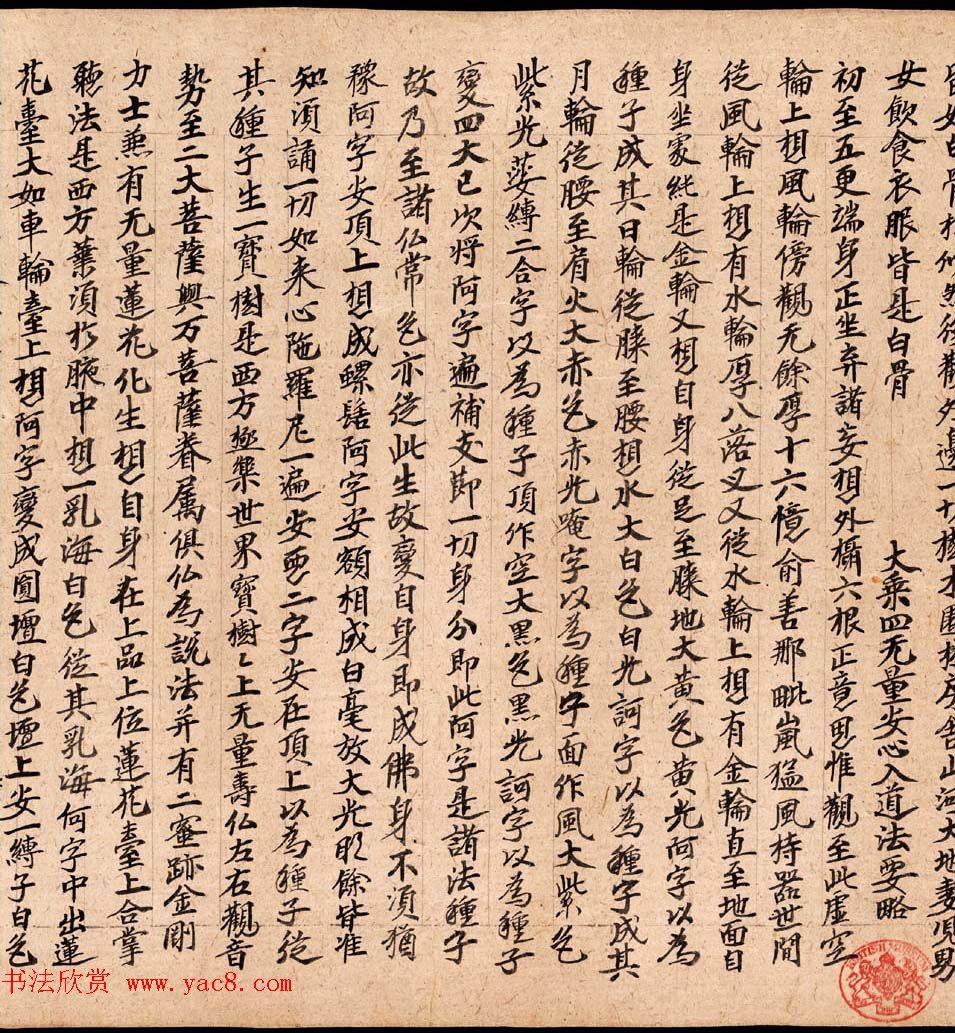 皆如白骨相似然後觀外邊一切樹木園林房舍山河大地妻児男
女飲食衣眼皆是白骨　大乘四无量安心入道法要略
初至五更端身正坐弃諸妄想外攝六根正意思惟觀至此虛空
輪上想風輪傍觀无餘厚十六憶俞善那毗嵐猛風持器世間
從風輪上想有水輪厚八落叉又從水輪上想有金輪直至地面自
身坐處純是金輪又想自身從足至膝地大黃色黃光阿字以為
種子成其日輪從膝至腰想水大白色白光訶字以為種字成其
月輪從腰至肩火大赤色赤光唵字以為種字面作風大紫色
紫光蓥縛二合字以為種子頂作空大黑色黑光訶字以為種子
變四大已次將阿字遍補支節一切身分即此阿字是諸法種子
故乃至諸仏常色亦從此生故變自身即成佛身不須猶
稼阿字安頂上想成螺髻阿字安額相成白毫放大光明餘皆准
知須誦一切如来心陁羅尼一遍安𠕀二字安在頂上以為種子從
其種子生一寳樹是西方極樂世界寶樹〻上无量壽仏左右觀音
勢至二大菩薩與万菩薩眷属俱仏為說法并有二蜜跡金剛
力士兼有无量蓮花化生想自身在上品上位蓮花臺上合掌
聽法是西方業須於腋中想一乳海白色從其乳海何字中出蓮
花臺大如車輪臺上想阿字變成圓壇白色壇上安一縛子白色
书法欣赏 www.yac8.com